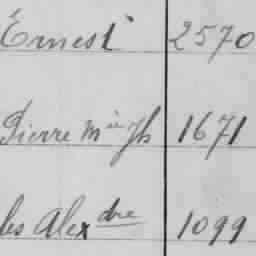 Ernest 2570
Pierre Mie Jh 1671
les Alexdre 1099